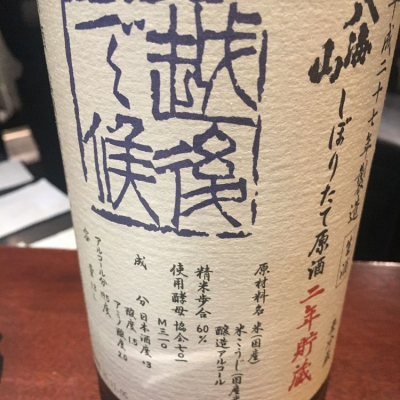 平成二十七年製造
八海山
しぼりたて原酒 二年貯蔵
越後
で候
原材料名 米(国産)
米こうじ(国産米)
醸造アルコール
精米歩合 60%
使用酵母 協会七〇一
M三一〇
成分 日本酒度 +3
酸度 1.5
アミノ酸度 2.0
アルコール分